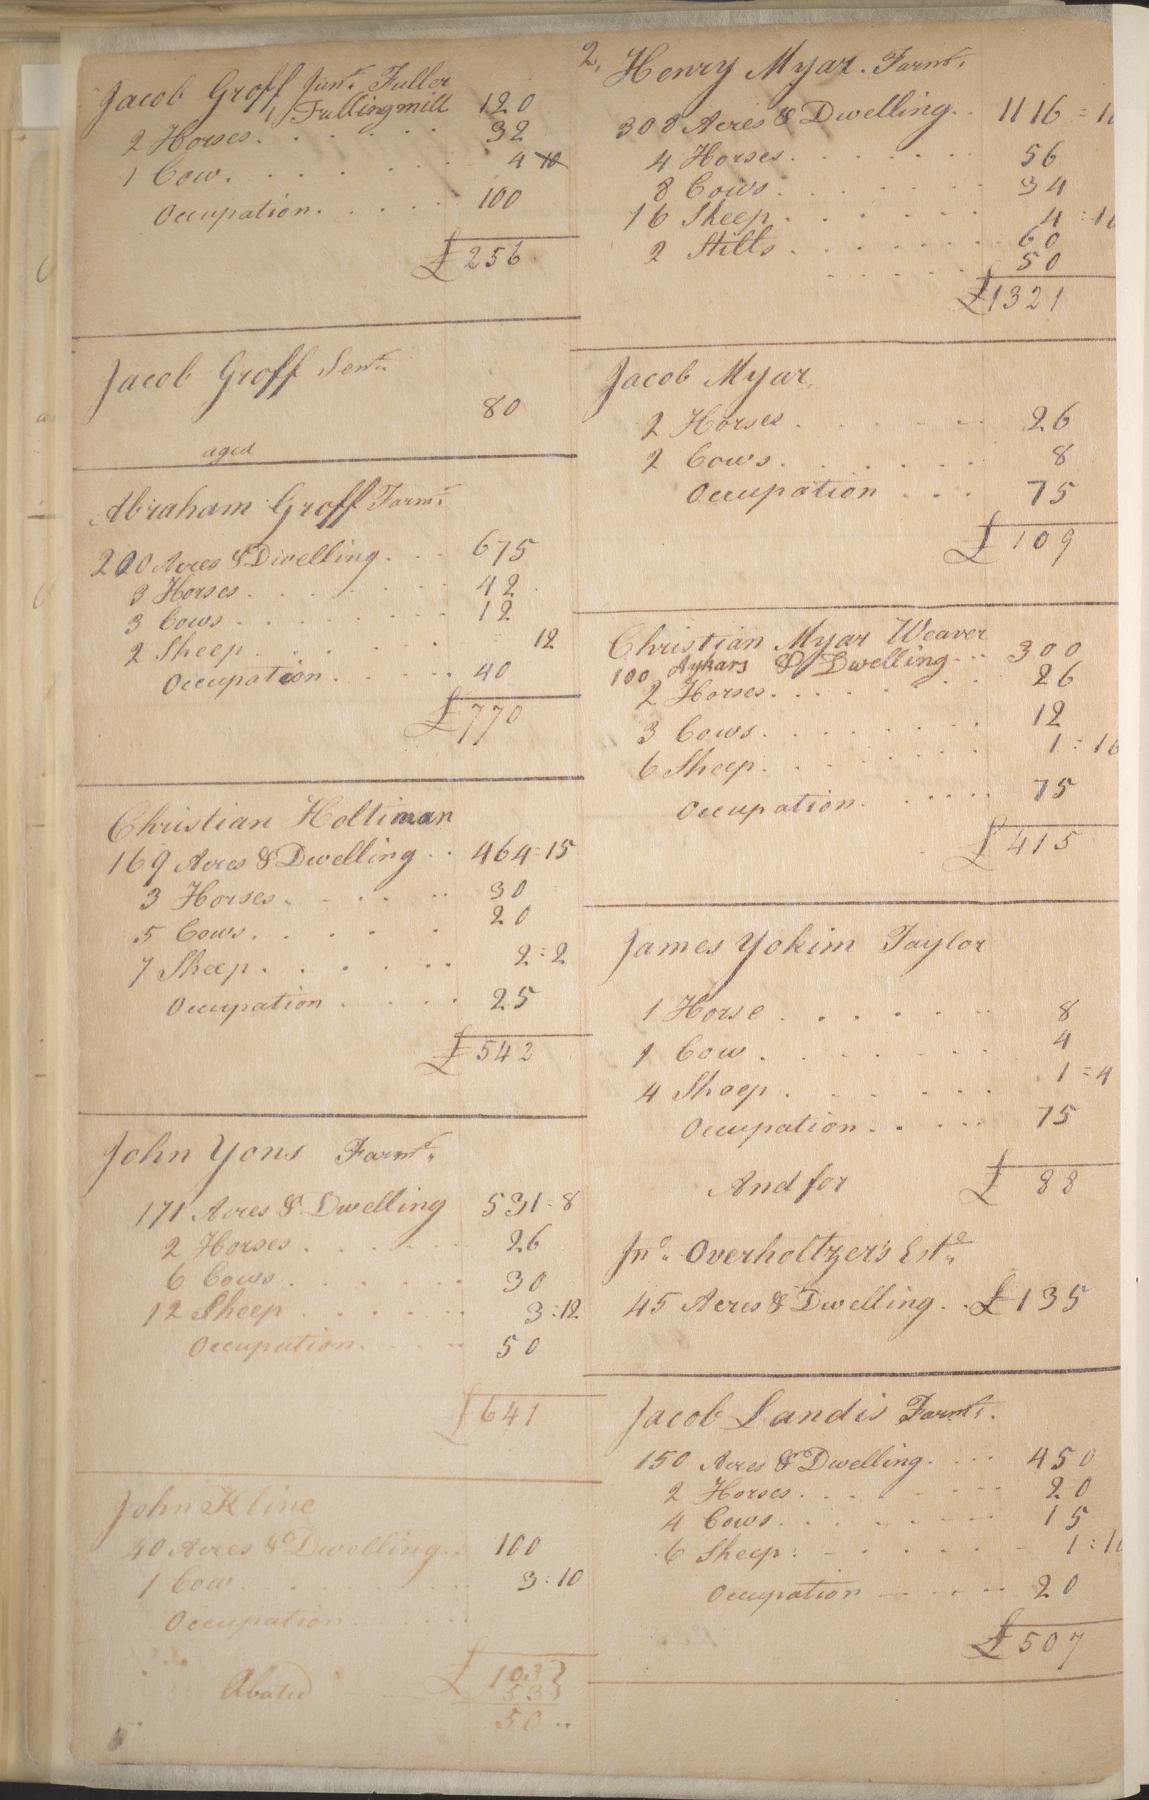 Jacob Groff Junr. Fuller
1 Fullingmill 120
2 Horses 32
1 Cow 4
Occupation 100
£256
Jacob Groff Senr.
80
aged
Abraham Groff Farmr.
200 Acres & Dwelling 675
3 Horses 42
3 Cows 12
2 Sheep 12
Occupation 40
£770
Christian Holtiman
169 Acres & Dwelling 464=15
3 Horses 30
5 Cows 20
7 Sheep 2=2
Occupation 25
£542
John Yons Farmr.
171 Acres & Dwelling 531=8
2 Horses 26
6 Cows 30
12 Sheep 3:12
Occupation 50
£641
John Kline
40 Acres & Dwelling 100
1 Cow 3:10
Occupation
£103
Abated 53
50
2.
Henry Myar. Farmr.
308 Acres & Dwelling 1116
4 Horses 56
8 Cows 34
16 Sheep 4
2 Stills 60
50
£1321
Jacob Myar.
2 Horses 26
2 Cows 8
Occupation 75
£109
Christian Myar Weaver
100 Aykars & Dwelling 300
2 Horses 26
3 Cows 12
6 Sheep 1:16
Occupation 75
£415
James Yokim Taylor
1 Horse 8
1 Cow 4
4 Sheep 1=4
Occupation 75
And for £88
Jno. Overholtzer's Este.
45 Acres & Dwelling £135
Jacob Landis Farmr.
150 Acres & Dwelling 450
2 Horses 20
4 Cows 15
6 Sheep 1:1
Occupation 20
£507